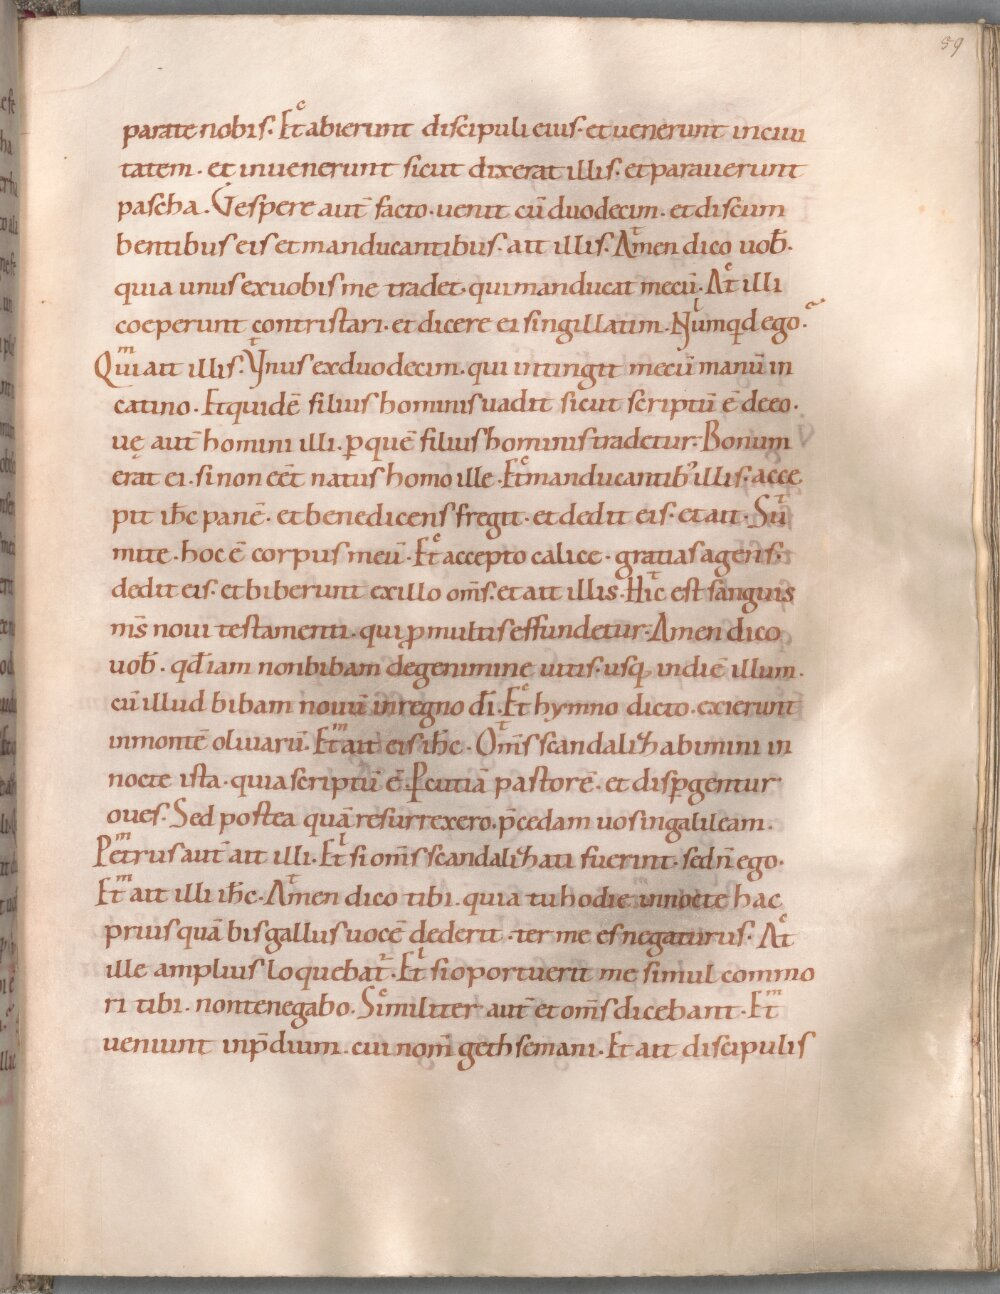 59
parate nobis. Et abierunt discipuli eius. et uenerunt inciui
tatem. et inuenerunt sicut dixerat illis. et parauerunt
pascha. Vespere aut̄ facto. uenit cū duodecim. et discum
bentibus eis et manducantibus. ait illis. Amen dico uob̄.
quia unus ex uobis me tradet. qui manducat mecū. At illi
coeperunt contristari. et dicere ei singillatim. Numqd ego.
Qui ait illis. Vnus ex duodecim. qui intingit mecū manū in
catino. Et quidē filius hominis uadit sicut scriptū ē de eo.
uę aut̄ homini illi. ꝑ quē filius hominis tradetur. Bonum
erat ei. si non eēt natus homo ille. Et manducantib; illis. acce
pit ih̄c panē. et benedicens fregit. et dedit eis. et ait. Sū
mite. hoc ē corpus meū. Et accepto calice. gratias agens.
dedit eis. et biberunt ex illo om̄s. et ait illis. Hic est sanguis
m̄s noui testamenti. qui ꝓ multis effundetur. Amen dico
uob̄. qđ iam non bibam de genimine uitis. usq; in diē illum.
cū illud bibam nouū in regno dī. Et hymno dicto. exierunt
in montē oliuarū. Et ait eis ih̄c. Om̄s scandalizabimini in
nocte ista. quia scriptū ē. Pcutiā pastorē. et dispgentur
oues. Sed postea quā resurrexero. p̄cedam uos in galileam.
Petrus aut̄ ait illi. Et si om̄s scandalizati fuerint. sed n̄ ego.
Et ait illi ih̄c. Amen dico tibi. quia tu hodie in nocte hac
prius quā bis gallus uocē dederit. ter me es negaturus. At
ille amplius loquebat̄. Et si oportuerit me simul commo
ri tibi. non te negabo. Similiter aut̄ et om̄s dicebant. Et
ueniunt in p̄dium. cui nom̄ gethsemani. Et ait discipulis